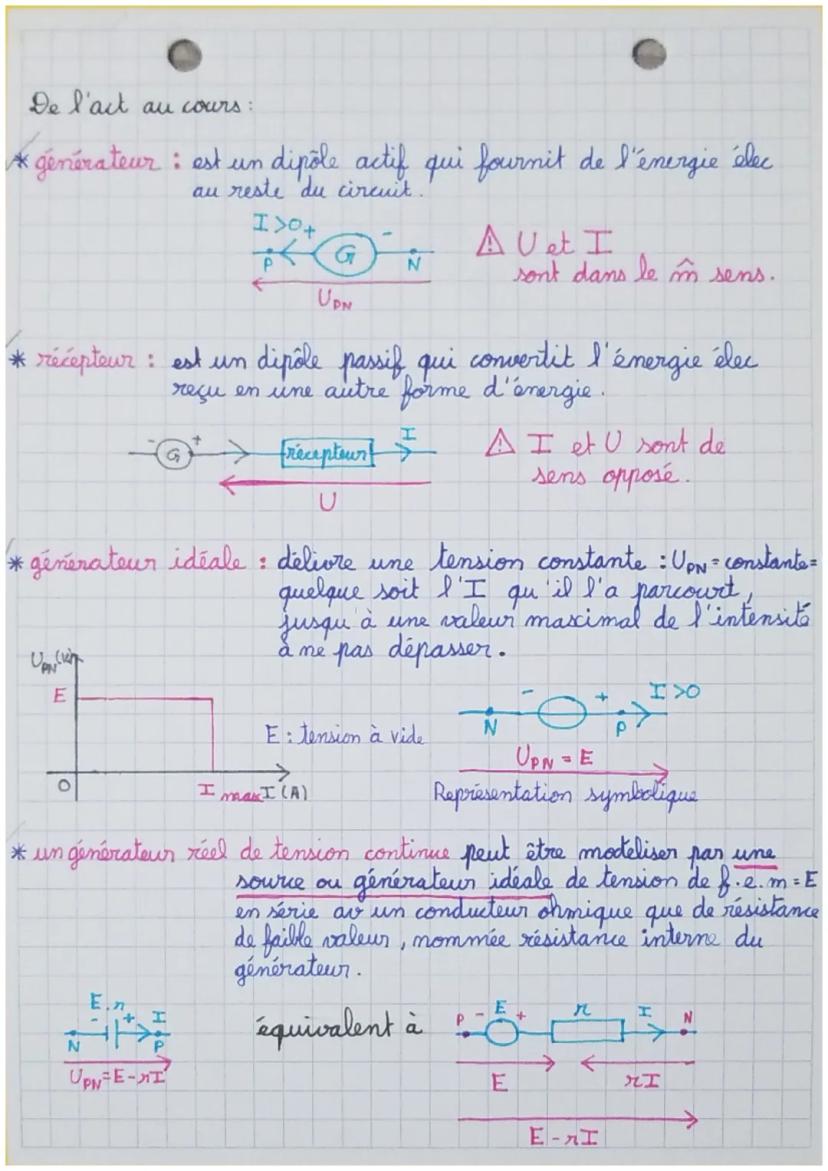 De l'act au cours :
* générateur : est un dipôle actif qui fournit de l'énergie élec
au reste du circuit.
I>0 + -
P G N
UPN
⚠ U et I
sont dans le m̂ sens.
* récépteur : est un dipôle passif qui convertit l'énergie élec
reçu en une autre forme d'énergie.
- G + récepteur I
U
⚠ I et U sont de
sens opposé.
* générateur idéale : délivre une tension constante : UPN = constante =
quelque soit l'I qu'il l'a parcourt,
jusqu'à une valeur maximal de l'intensité
à ne pas dépasser.
UPN (V)
E
O I max I (A)
E : tension à vide
- + I>0
N P
UPN = E
Représentation symbolique
* un générateur réel de tension continue peut être modeliser par une
source ou générateur idéale de tension de f.e.m = E
en série av un conducteur ohmique que de résistance
de faible valeur, nommée résistance interne du
générateur.
E.r
- + I
N P
UPN = E - rI
équivalent à
P - E + r I N
E rI
E - rI